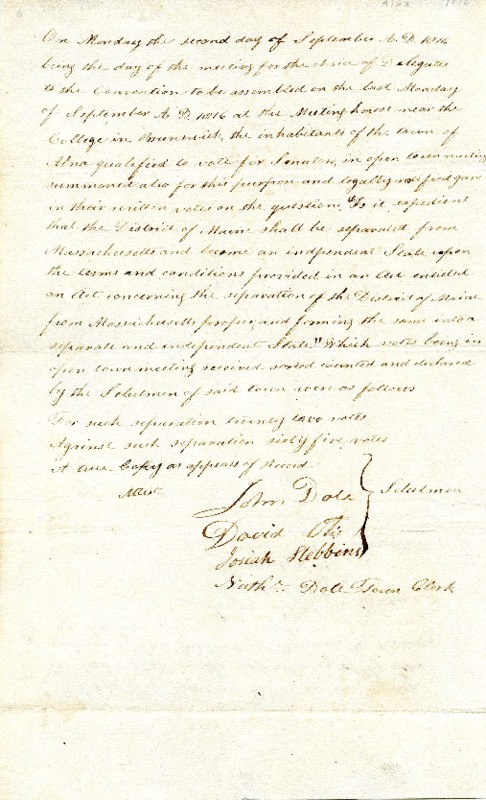 On Monday the second day of September A. D. 1816
being the day of the meeting for the choice of Delegates
to the Convention to be assembled on the last Monday
of September A. D. 1816 at the Meeting house near the
College in Brunswick, the inhabitants of the town of
Alna qualified to vote for Senators, in open town meeting
summoned also for this purpose and legally notified gave
in their written votes on the question. "Is it expedient
that the District of Maine shall be separated from
Massachusetts and become an indpendent State upon
the terms and conditions provided in an Act entitled
an Act concerning the separation of the District of Maine
from Massachusetts proper, and forming the same into a
separate and independent State" Which votes being in
open town meeting received sorted counted and declared
by the Selectmen of said town were as follows
For such separation twenty two votes
Against such separation sixty five votes
A true Copy as appears of Record.
Attest
John Dole
Selectmen
David Otis
Josiah Stebbins
Nathl. Dole Town Clerk